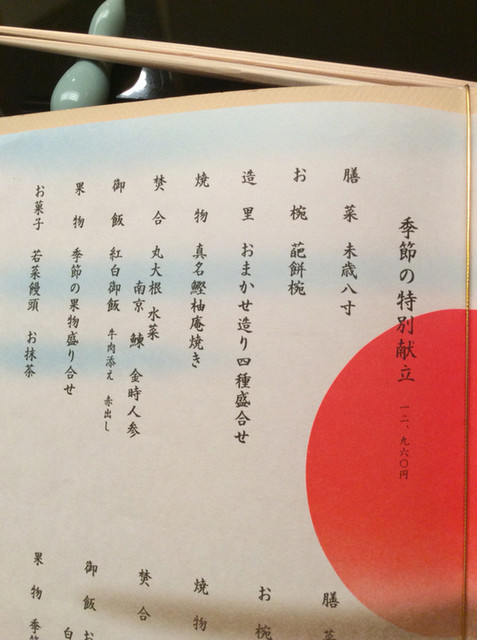 季節の特別献立 一二、九六〇円
膳菜 未歳八寸
お椀 葩餅椀
造里 おまかせ造り四種盛合せ
焼物 真名鰹柚庵焼き
焚合 丸大根 水菜
南京 鰊 金時人参
御飯 紅白御飯 牛肉添え 赤出し
果物 季節の果物盛り合せ
お菓子 若菜饅頭 お抹茶
膳菜
お椀
焼物
焚合
御飯 お
白
果物 季節